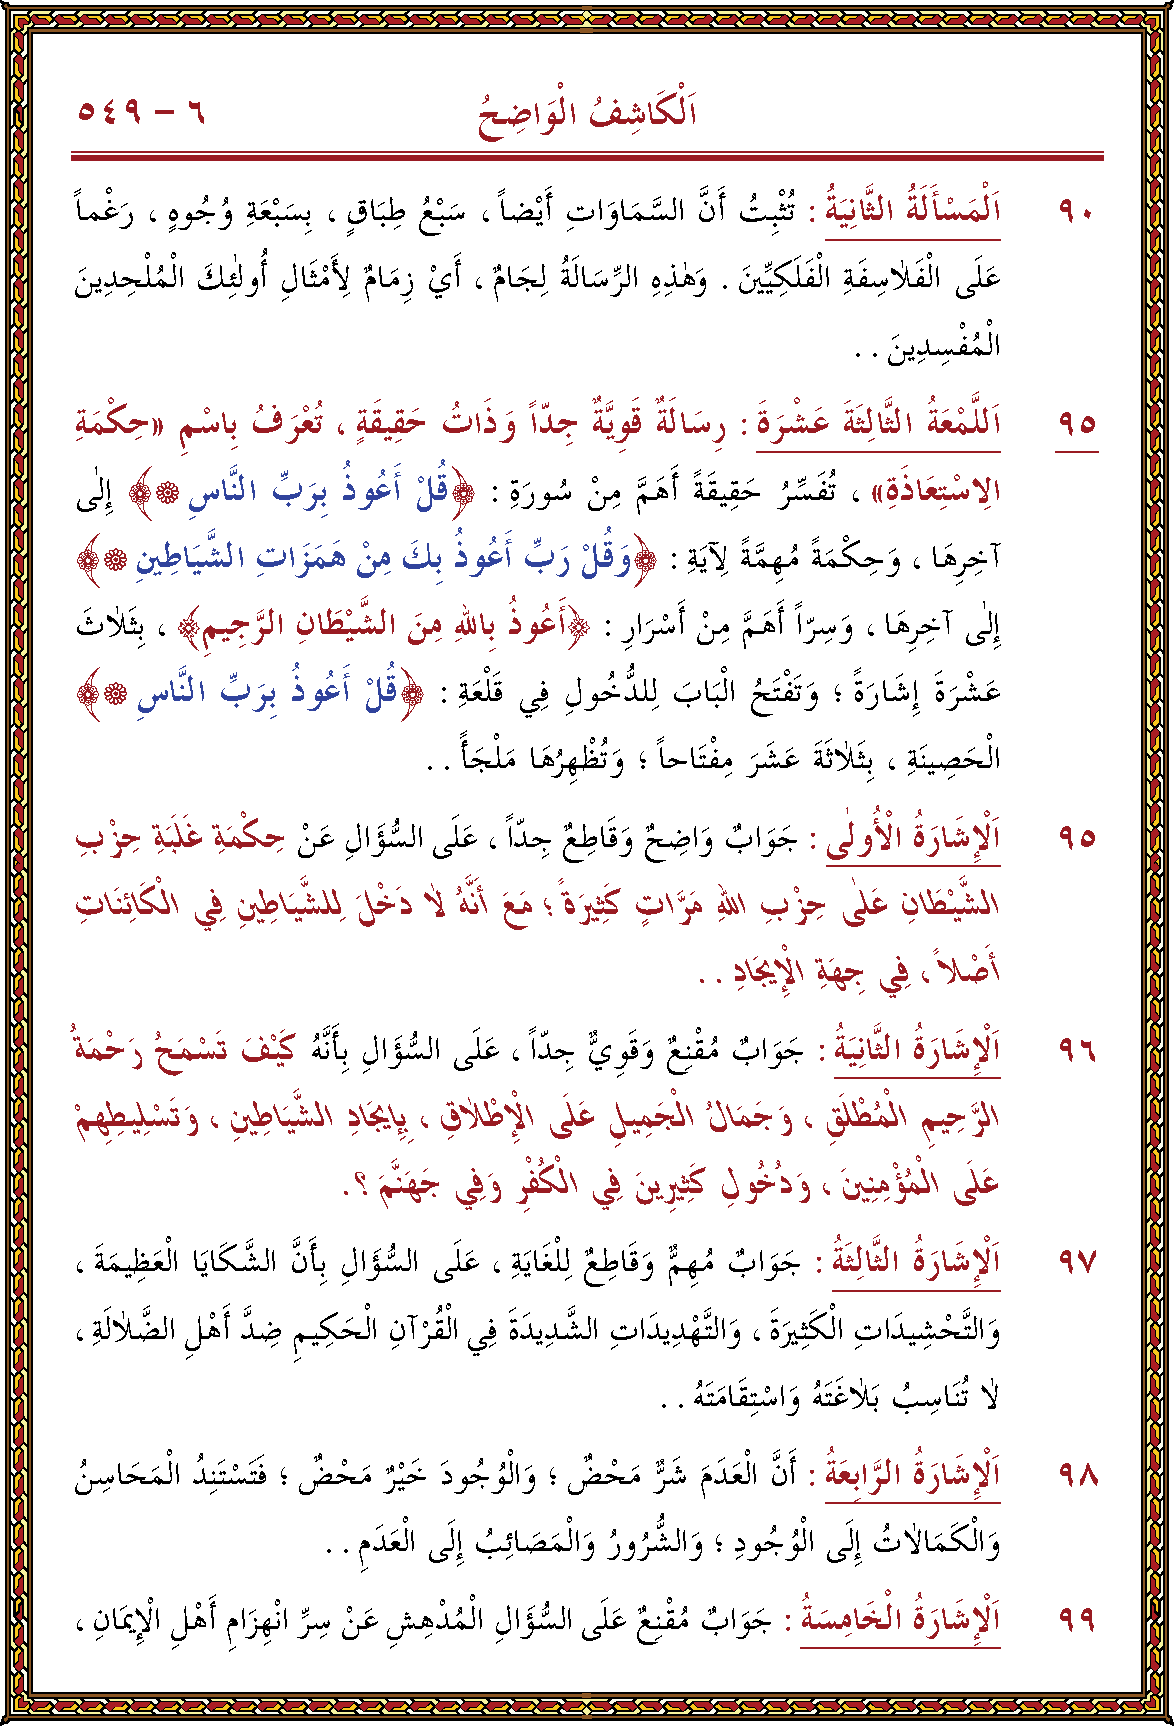 اَلْكَاشِفُ الْوَاضِحُ ٦ – ٥٤٩
٩٠ اَلْمَسْأَلَةُ الثَّانِيَةُ : تُثْبِتُ أَنَّ السَّمَاوَاتِ أَيْضاً ، سَبْعُ طِبَاقٍ ، بِسَبْعَةِ وُجُوهٍ ، رَغْماً
عَلَى الْفَلاٰسِفَةِ الْفَلَكِيِّينَ . وَهٰذِهِ الرِّسَالَةُ لِجَامٌ ، أَيْ زِمَامٌ لِأَمْثَالِ أُولٰئِكَ الْمُلْحِدِينَ
الْمُفْسِدِينَ . .
٩٥ اَللَّمْعَةُ الثَّالِثَةَ عَشْرَةَ : رِسَالَةٌ قَوِيَّةٌ جِدّاً وَ ذَاتُ حَقِيقَةٍ ، تُعْرَفُ بِاسْمِ «حِكْمَةِ
الِاسْتِعَاذَةِ» ، تُفَسِّرُ حَقِيقَةً أَهَمَّ مِنْ سُورَةِ : ﴿قُلْ أَعُوذُ بِرَبِّ النَّاسِ ۞﴾ إِلٰى
آخِرِهَا ، وَحِكْمَةً مُهِمَّةً لِآيَةِ : ﴿وَقُلْ رَبِّ أَعُوذُ بِكَ مِنْ هَمَزَاتِ الشَّيَاطِينِ ۞﴾
إِلٰى آخِرِهَا ، وَسِرّاً أَهَمَّ مِنْ أَسْرَارِ : ﴿أَعُوذُ بِاللهِ مِنَ الشَّيْطَانِ الرَّجِيمِ﴾ ، بِثَلاٰثَ
عَشْرَةَ إِشَارَةً ؛ وَتَفْتَحُ الْبَابَ لِلدُّخُولِ فِي قَلْعَةِ : ﴿قُلْ أَعُوذُ بِرَبِّ النَّاسِ ۞﴾
الْحَصِينَةِ ، بِثَلاٰثَةَ عَشَرَ مِفْتَاحاً ؛ وَتُظْهِرُهَا مَلْجَأً . .
٩٥ اَلْإِشَارَةُ الْأُولٰى : جَوَابٌ وَاضِحٌ وَقَاطِعٌ جِدّاً ، عَلَى السُّؤَالِ عَنْ حِكْمَةِ غَلَبَةِ حِزْبِ
الشَّيْطَانِ عَلٰى حِزْبِ اللهِ مَرَّاتٍ كَثِيرَةً ؛ مَعَ أَنَّهُ لاٰ دَخْلَ لِلشَّيَاطِينِ فِي الْكَائِنَاتِ
أَصْلاً ، فِي جِهَةِ الْإِيجَادِ . .
٩٦ اَلْإِشَارَةُ الثَّانِيَةُ : جَوَابٌ مُقْنِعٌ وَقَوِيٌّ جِدّاً ، عَلَى السُّؤَالِ بِأَنَّهُ كَيْفَ تَسْمَحُ رَحْمَةُ
الرَّحِيمِ الْمُطْلَقِ ، وَجَمَالُ الْجَمِيلِ عَلَى الْإِطْلاٰقِ ، بِإِيجَادِ الشَّيَاطِينِ ، وَتَسْلِيطِهِمْ
عَلَى الْمُؤْمِنِينَ ، وَدُخُولِ كَثِيرِينَ فِي الْكُفْرِ وَفِي جَهَنَّمَ ؟ .
٩٧ اَلْإِشَارَةُ الثَّالِثَةُ : جَوَابٌ مُهِمٌّ وَقَاطِعٌ لِلْغَايَةِ ، عَلَى السُّؤَالِ بِأَنَّ الشَّكَايَا الْعَظِيمَةَ ،
وَالتَّحْشِيدَاتِ الْكَثِيرَةَ ، وَالتَّهْدِيدَاتِ الشَّدِيدَةَ فِي الْقُرْآنِ الْحَكِيمِ ضِدَّ أَهْلِ الضَّلاٰلَةِ ،
لاٰ تُنَاسِبُ بَلاٰغَتَهُ وَاسْتِقَامَتَهُ . .
٩٨ اَلْإِشَارَةُ الرَّابِعَةُ : أَنَّ الْعَدَمَ شَرٌّ مَحْضٌ ؛ وَالْوُجُودَ خَيْرٌ مَحْضٌ ؛ فَتَسْتَنِدُ الْمَحَاسِنُ
وَالْكَمَالاٰتُ إِلَى الْوُجُودِ ؛ وَالشُّرُورُ وَالْمَصَائِبُ إِلَى الْعَدَمِ . .
٩٩ اَلْإِشَارَةُ الْخَامِسَةُ : جَوَابٌ مُقْنِعٌ عَلَى السُّؤَالِ الْمُدْهِشِ عَنْ سِرِّ انْهِزَامِ أَهْلِ الْإِيمَانِ ،